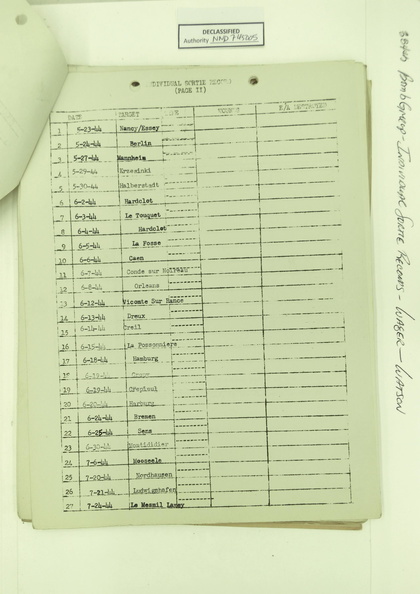 DECLASSIFIED
Authority NND 745005
INDIVIDUAL SORTIE RECORD
(PAGE II)
DATE TARGET VOUCHER E/A DESTROYED
1 5-23-44 Nancy/Essey
2 5-24-44 Berlin
3 5-27-44 Mannheim
4 5-29-44 Krzesinki
5 5-30-44 Halberstadt
6 6-2-44 Hardelot
7 6-3-44 Le Touquet
8 6-4-44 Hardelot
9 6-5-44 La Fosse
10 6-6-44 Caen
11 6-7-44 Conde sur
12 6-8-44 Orleans
13 6-12-44 Vicomte Sur
14 6-13-44 Dreux
15 6-14-44 Creil
16 6-15-44 La Possonniere
17 6-18-44 Hamburg
18 6-19-44
19 6-19-44
20 6-20-44 Harburg
21 6-24-44 Bremen
22 6-25-44 Sens
23 6-30-44 Montididier
24 7-6-44
25 7-20-44 Nordhausen
26 7-21-44 Ludwigshafen
27 7-24-44 Le Mesnil
384th Bomb Group - Individual Sortie Records - WABER - WATSON